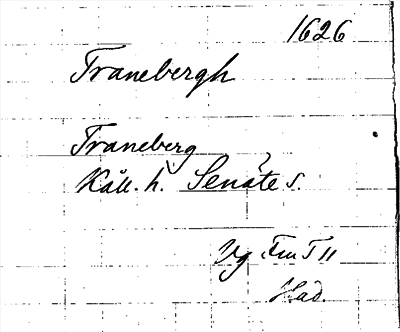 1626
Tranebergh
Traneberg
Kåll. h. Senäte s.
Vg Fru T 11
Had.